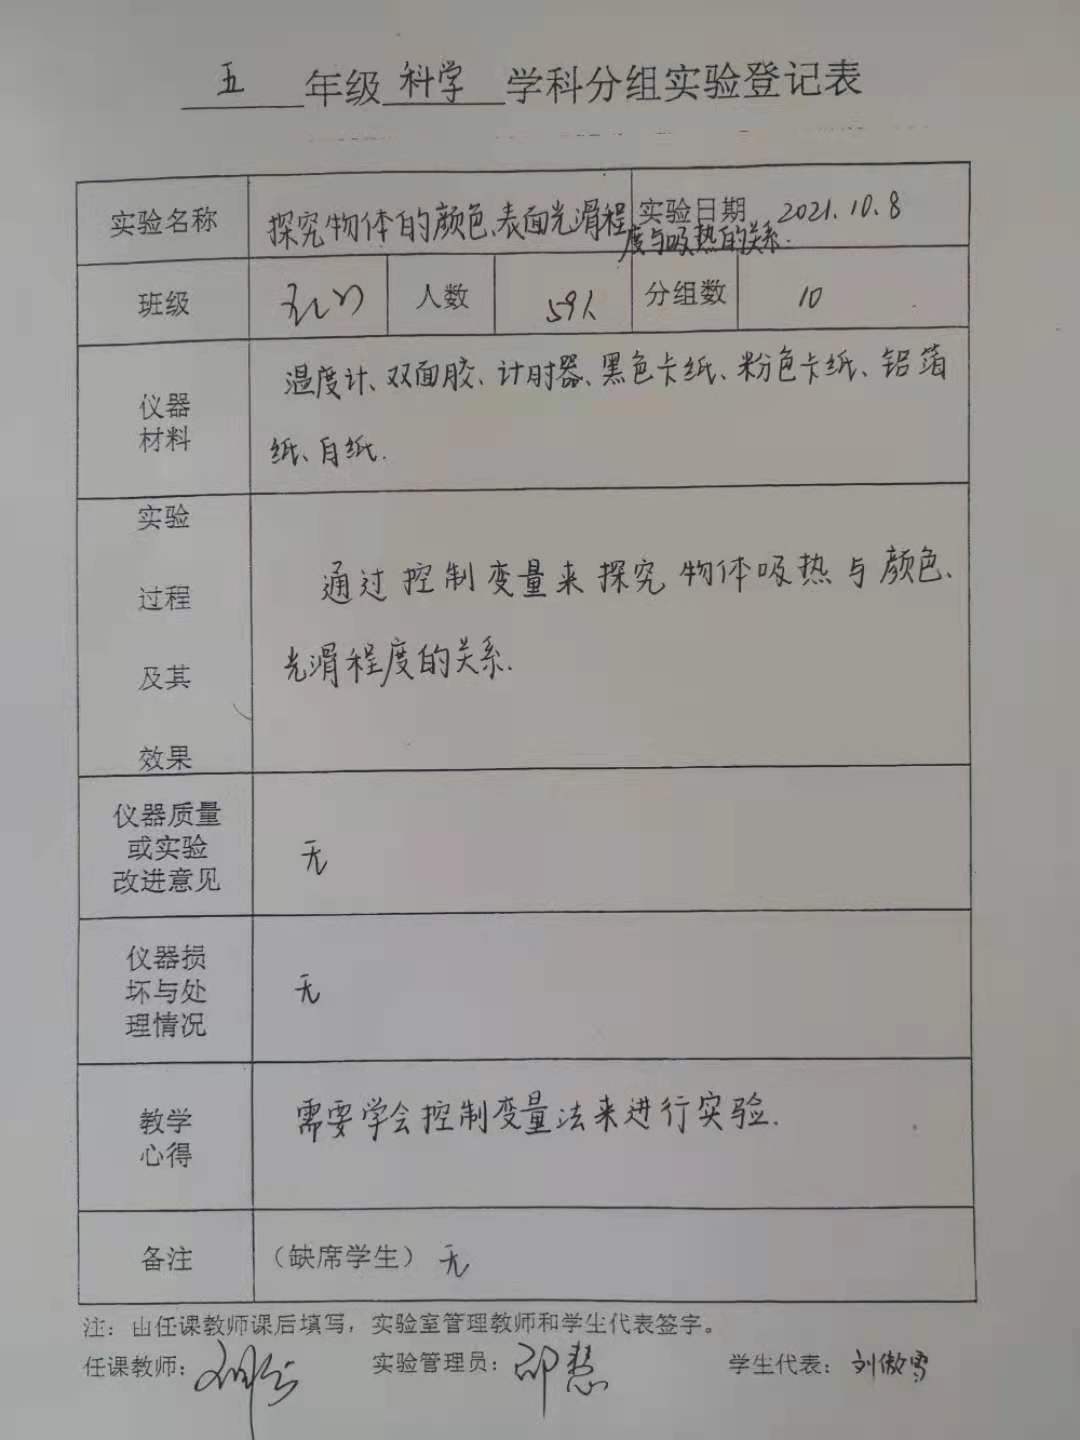 五年级科学学科分组实验登记表
实验名称 探究物体的颜色、表面光滑程度与吸热的关系. 实验日期 2021.10.8
班级 人数 59人 分组数 10
仪器
材料
温度计、双面胶、计时器、黑色卡纸、粉色卡纸、铝箔
纸、白纸.
实验
过程
及其
效果
通过控制变量来探究物体吸热与颜色、
光滑程度的关系.
仪器质量
或实验
改进意见
无
仪器损
坏与处
理情况
无
教学
心得
需要学会控制变量法来进行实验.
备注 （缺席学生） 无
注：由任课教师课后填写，实验室管理教师和学生代表签字。
任课教师： 实验管理员：邵慧 学生代表：刘傲雪